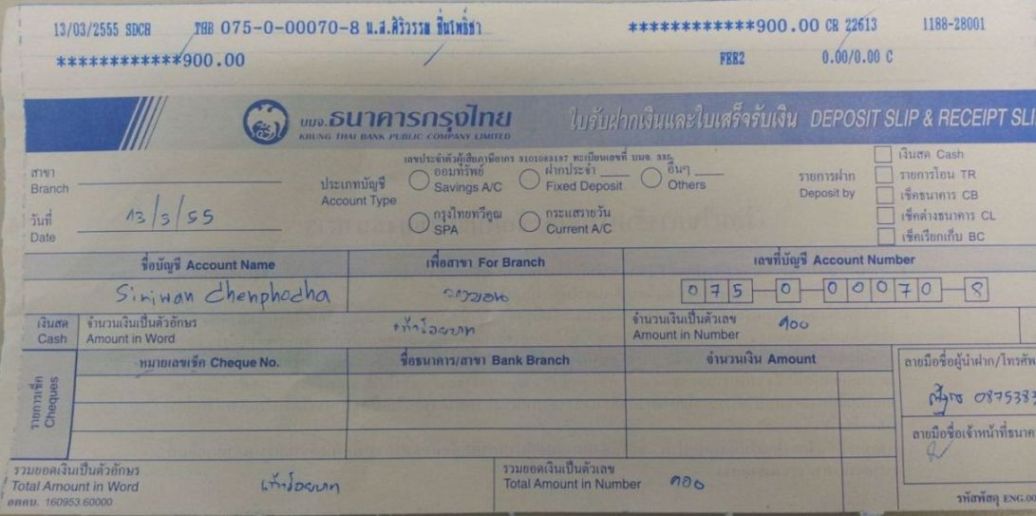 13/03/2555 SDCH THB 075-0-00070-8 น.ส.ศิริวรรณ ชื่นโพธิ์ชา ************900.00 CR 22613 1188-28001
************900.00 FEE2 0.00/0.00 C
บมจ.ธนาคารกรุงไทย ใบรับฝากเงินและใบเสร็จรับเงิน DEPOSIT SLIP & RECEIPT SLI
KRUNG THAI BANK PUBLIC COMPANY LIMITED
เลขประจำตัวผู้เสียภาษีอากร ทะเบียนเลขที่ บมจ. 335
สาขา
Branch
วันที่
Date
13/3/55
ประเภทบัญชี
Account Type
ออมทรัพย์
Savings A/C
ฝากประจำ
Fixed Deposit
อื่นๆ
Others
กรุงไทยทวีคูณ
SPA
กระแสรายวัน
Current A/C
รายการฝาก
Deposit by
เงินสด Cash
รายการโอน TR
เช็คธนาคาร CB
เช็คต่างธนาคาร CL
เช็คเรียกเก็บ BC
ชื่อบัญชี Account Name เพื่อสาขา For Branch เลขที่บัญชี Account Number
Siriwan Chenphodha 075-0-00070-8
เงินสด
Cash
จำนวนเงินเป็นตัวอักษร
Amount in Word
เก้าร้อยบาท
จำนวนเงินเป็นตัวเลข
Amount in Number
900
รายการเช็ค
Cheques
หมายเลขเช็ค Cheque No. ชื่อธนาคาร/สาขา Bank Branch จำนวนเงิน Amount
ลายมือชื่อผู้นำฝาก/โทรศัพ
087538
ลายมือชื่อเจ้าหน้าที่ธนาค
รวมยอดเงินเป็นตัวอักษร
Total Amount in Word
เก้าร้อยบาท
รวมยอดเงินเป็นตัวเลข
Total Amount in Number
900
160953.60000
รหัสพัสดุ ENG.00